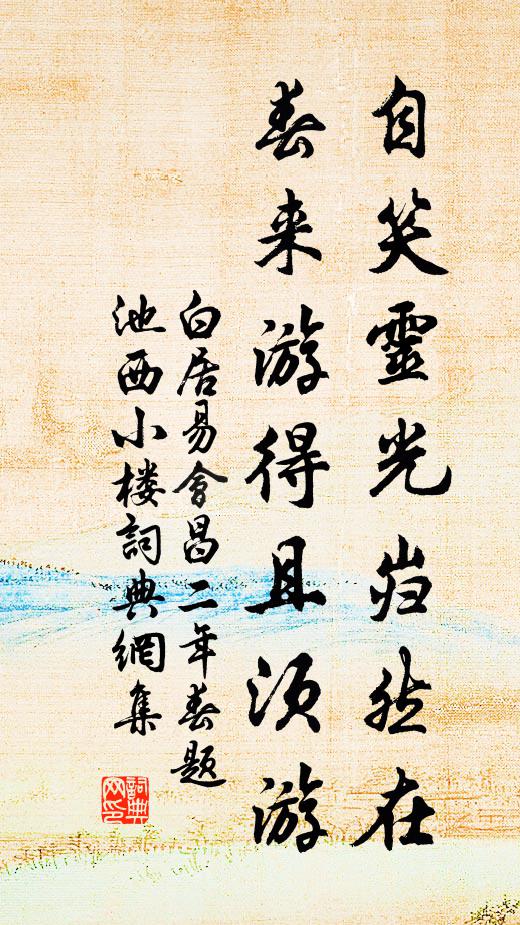 自笑靈光岿然在
春来游得且须游
白居易會昌二年春題
池西小楼詞典網集
詞典
网印